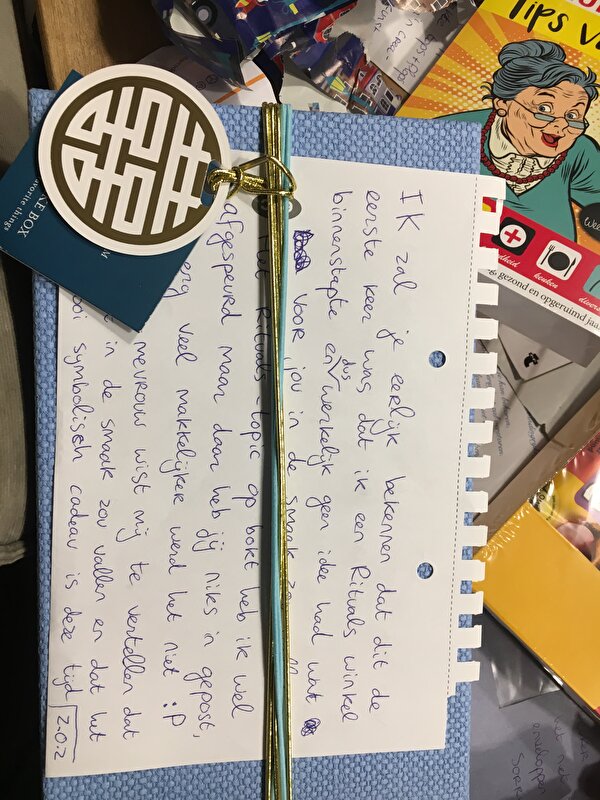 IK zal je eerlijk bekennen dat dit de
eerste keer was dat ik een Rituals winkel
binnenstapte en dus werkelijk geen idee had wat
voor jou in de smaak
Het Rituals-topic op bokt heb ik wel
afgespeurd maar daar heb jij niks in gepost,
erg veel makkelijker werd het niet :P
mevrouw wist mij te vertellen dat
in de smaak zou vallen en dat het
ooi symbolisch cadeau is deze tijd
Z.O.Z
BOX
favorite things
Tips
keuken
gezond en opgeruimd